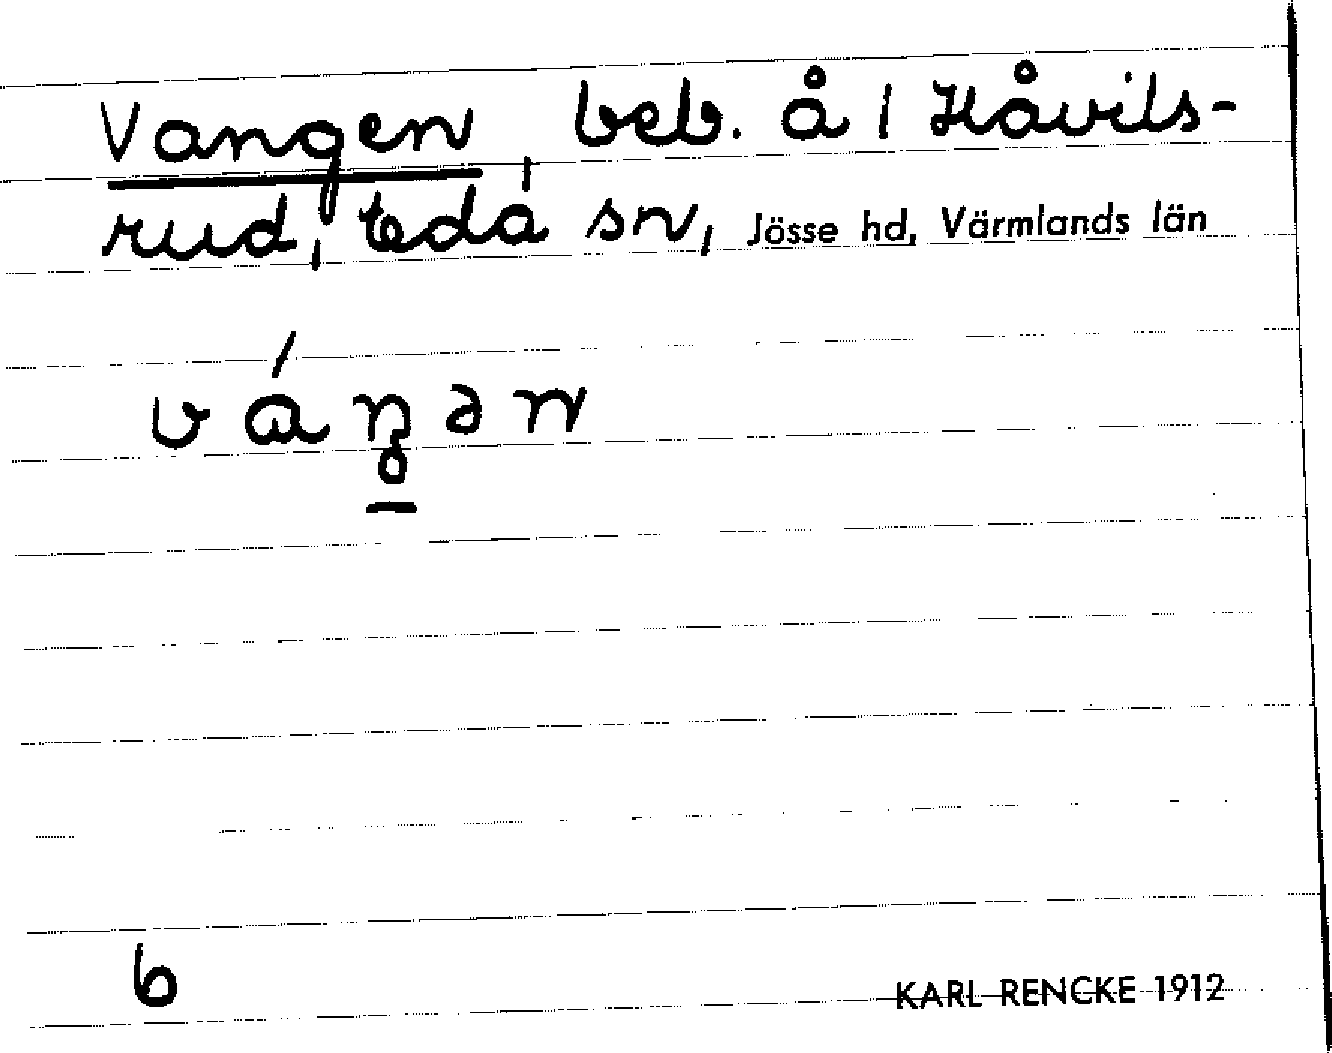 Vangen, beb. å 1 Håvils-
rud, Eda sn, Jösse hd, Värmlands län
váŋən
6
KARL RENCKE 1912